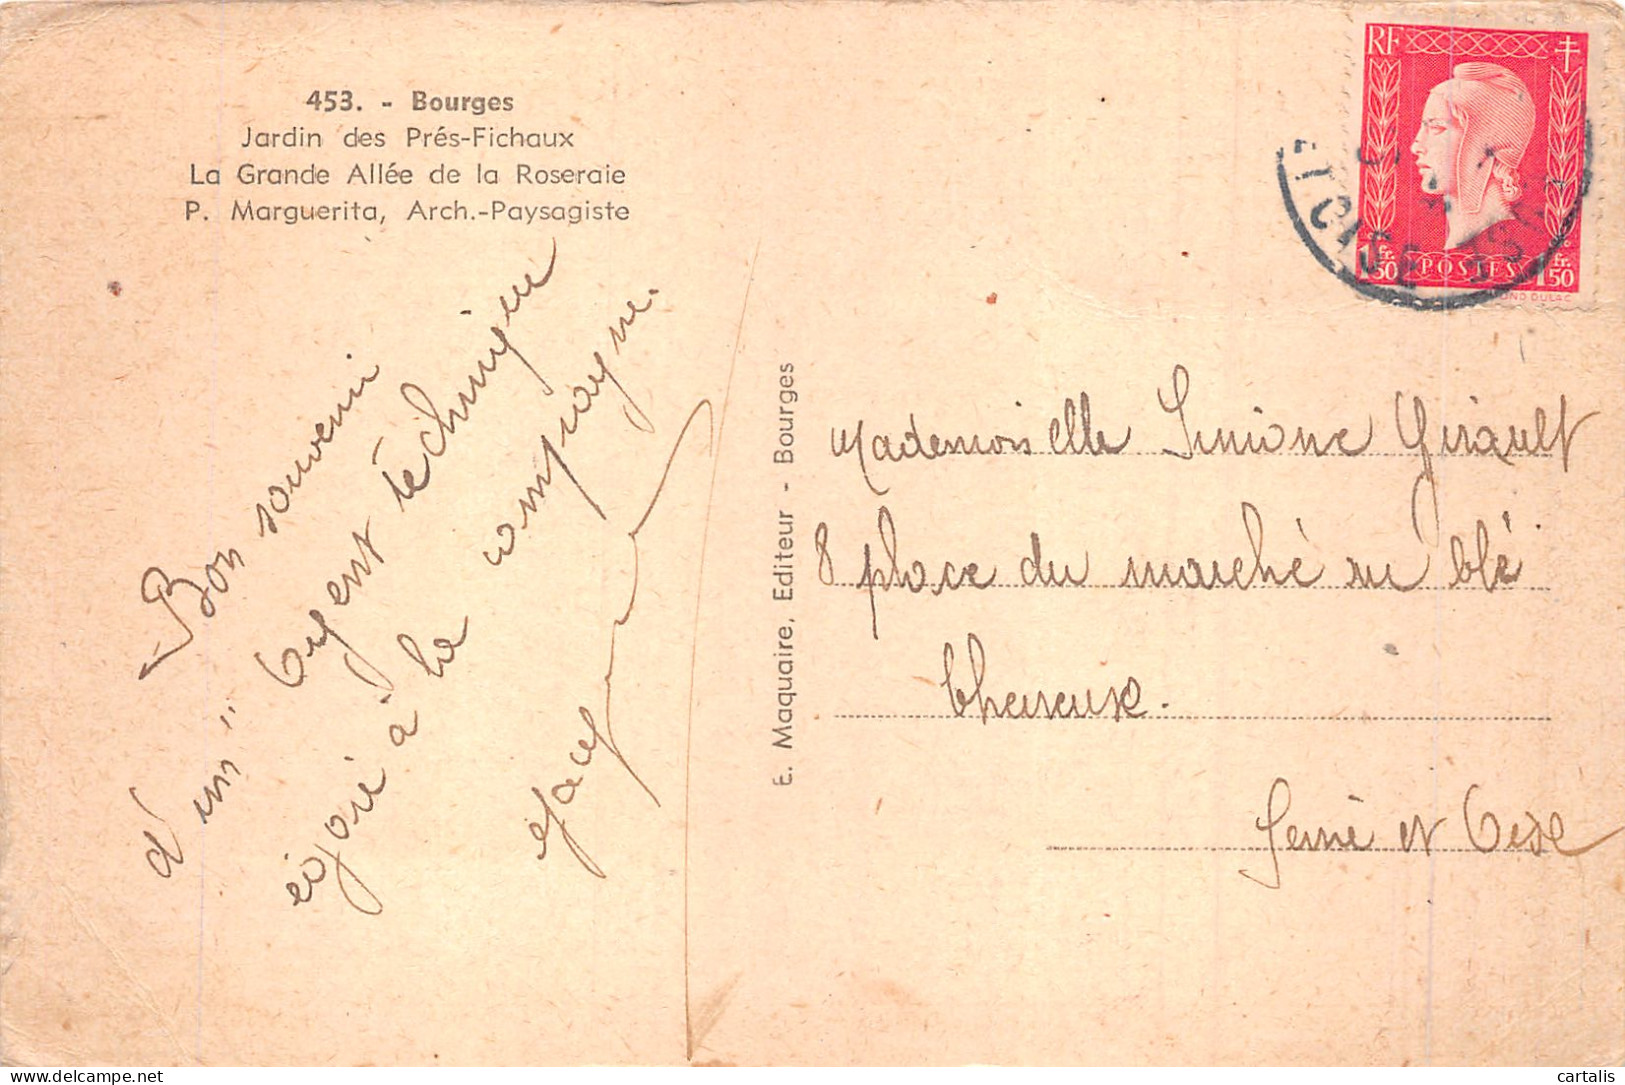 453. - Bourges
Jardin des Prés-Fichaux
La Grande Allée de la Roseraie
P. Marguerita, Arch.-Paysagiste
RF
1fr.50 POSTES 1fr.50
OND DULAC
Bon souvenir
d'un "Agent téchniqeu
à la compagne.
Jacq
E. Maquaire, Editeur - Bourges
Mademoiselle Simone Girault
8 place du marché au blé
Chevreuse.
Seine et Oise
cartalis